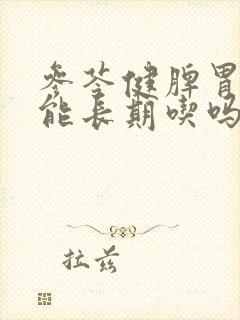 参苓健脾胃
能长期喫吗
拉兹